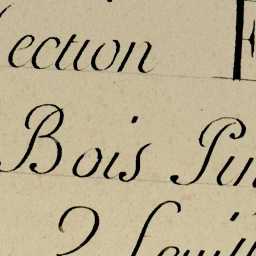 ection
Bois Pin
2 feuill